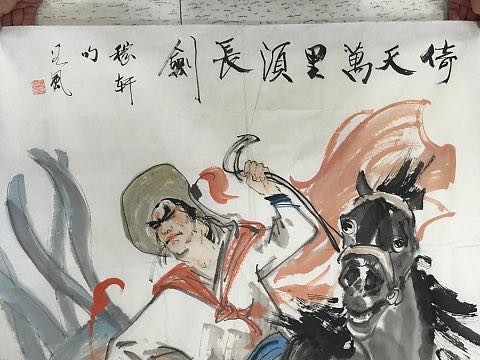 倚天萬里須長劍
稼軒
句